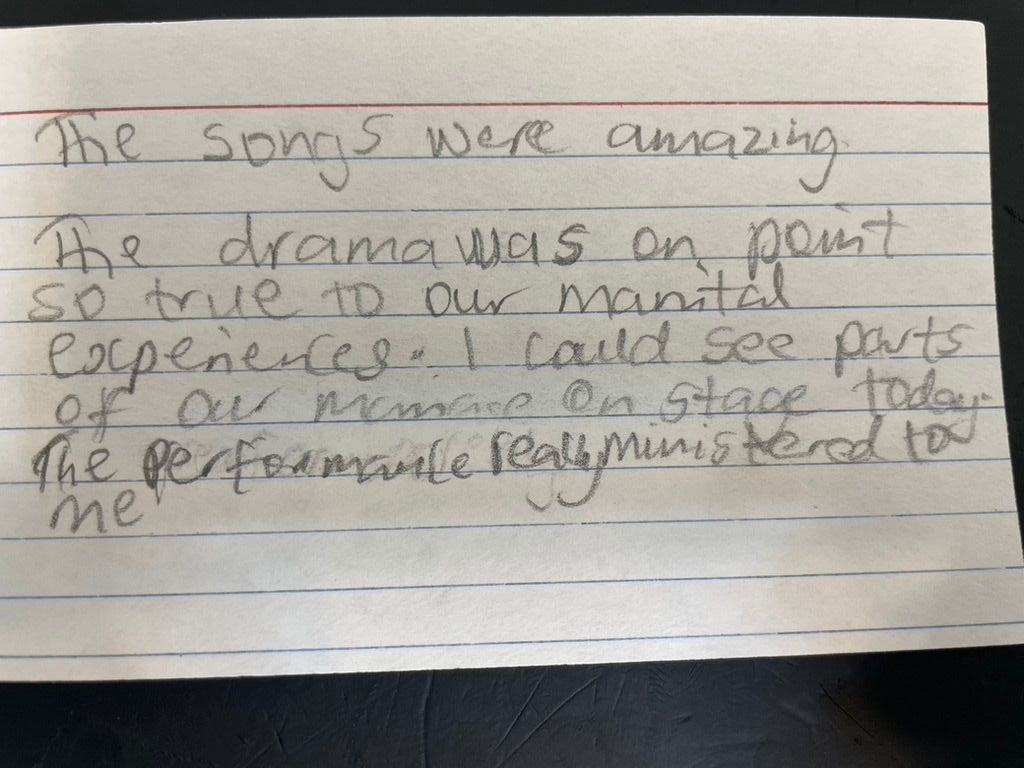 The songs were amazing.
The drama was on point
so true to our marital
experiences. I could see parts
of our on stage today.
The performance really ministered to
me